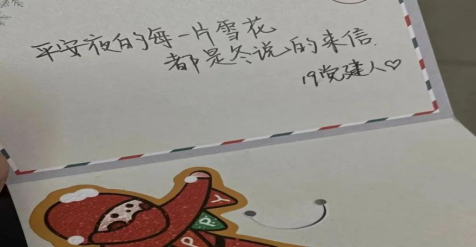 平安夜的每一片雪花
都是冬说的来信.
19党建人♡
PPY